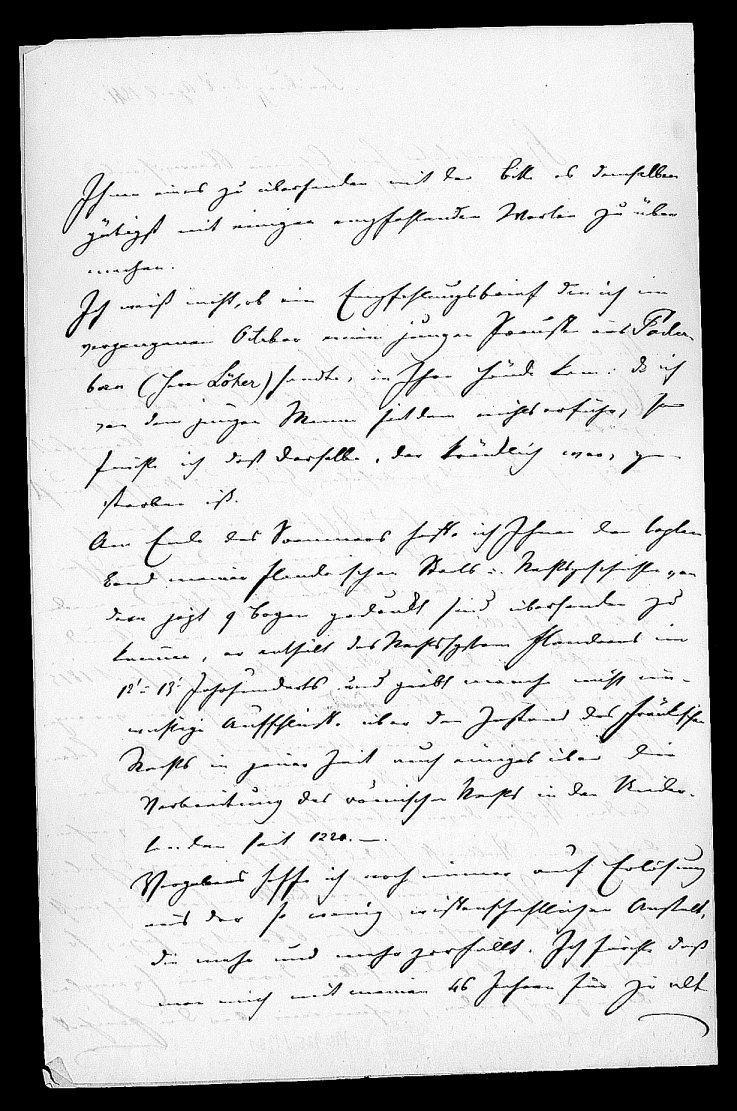 Ihnen eines zu übersenden mit der Bitte es demselben
gütigst mit einigen empfehlenden Worten zu über
machen.
Ich weiß nicht, ob ein Empfehlungsbrief den ich im
vergangenen October einem jungen Preußen aus Pader-
born (Herrn Löher) sandte, in Ihre Hände kam: da ich
von dem jungen Mann seitdem nichts erfuhr, so
fürchte ich daß derselbe, der kränklich war, ge
storben ist.
Am Ende des Sommers hoffe ich Ihnen den letzten
Band meiner flandrischen Staats u. Rechtsgeschichte von
dem jetzt 9 Bogen gedruckt sind übersenden zu
können, er enthält das Rechtssystem Flanderns im
12t - 13t Jahrhunderts und giebt manche nicht un-
wichtige Aufschlüsse über den Zustand des fränkischen
Rechts in jener Zeit auch einiges über die
Verbreitung des römischen Rechts in den Nieder-
landen seit 1220. —.
Vergebens hoffe ich noch immer auf Erlösung
aus der so wenig wissenschaftlichen Anstalt,
die mehr und mehr zerfällt. Ich fürchte daß
man mich mit meinen 46 Jahren für zu alt